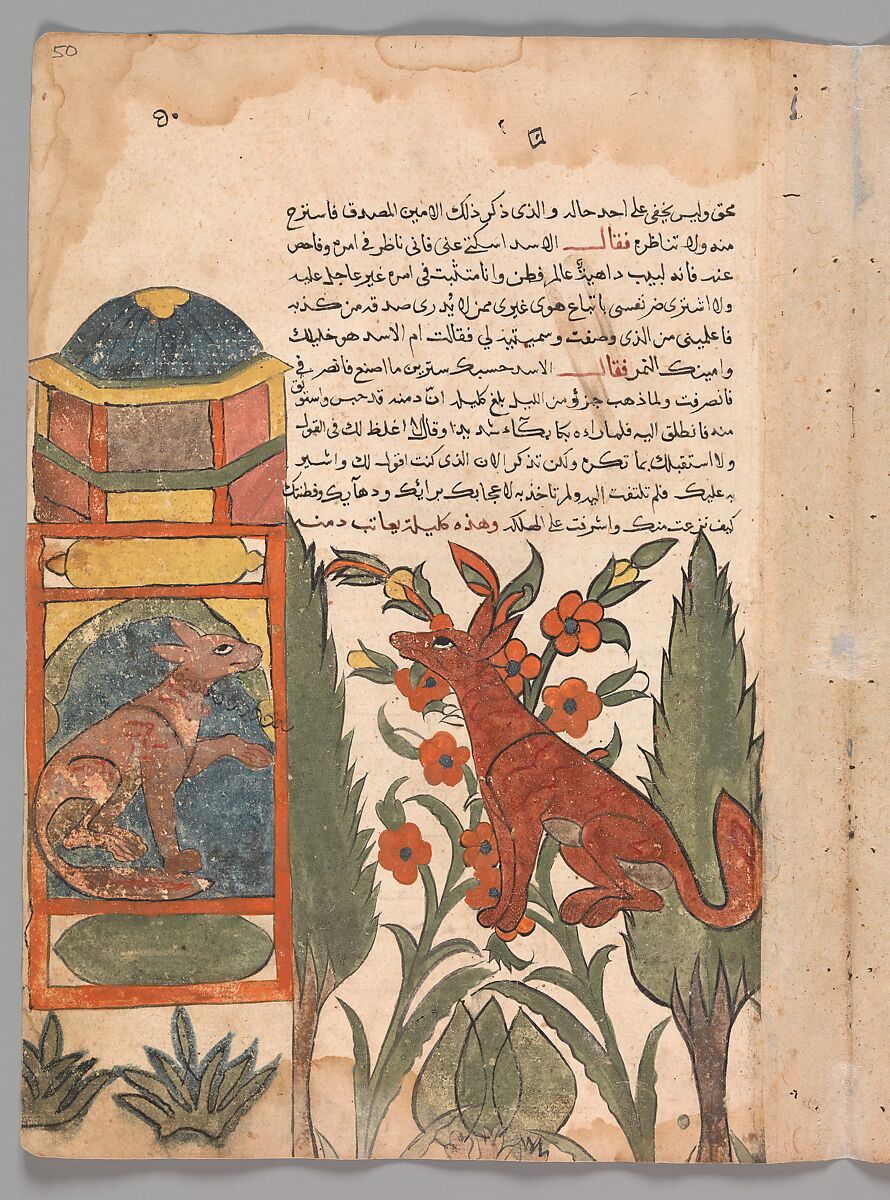 50
٥٠
محق وليس يخفى على احد حاله والذى ذكر ذلك الامين المصدق فاسترح
منه ولا تناظره فقال الاسد اسكتى عنى فانى ناظر فى امره وفاحص
عنه فانه لبيب داهية عالم فطن وانا متثبت فى امره غير عاجل عليه
ولا اشترى ضر نفسى باتباع هوى غيرى ممن لا يدرى صدقه من كذبه
فاعلمينى من الذى وصفت وسميتيه لي فقالت ام الاسد هو خليلك
وامينك النمر فقال الاسد حسبك سترين ما اصنع فانصرفى
فانصرفت ولما ذهب جزؤ من الليل بلغ كليله ان دمنه قد حبس واستوثق
منه فانطلق اليه فلما راه بكا بكآء شديدا وقال لا اغلظ لك فى القول
ولا استقبلك بما تكره ولكن تذكر الان الذى كنت اقول لك واشير
به عليك فلم تلتفت اليه ولم تاخذ به لاعجابك برايك ودهآيك وفطنتك
كيف نزعت منك واشرفت على الهلكه وهذه كليلة يعاتب دمنه